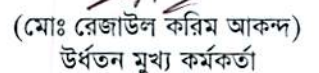 (মোঃ রেজাউল করিম আকন্দ)
উর্ধতন মুখ্য কর্মকর্তা